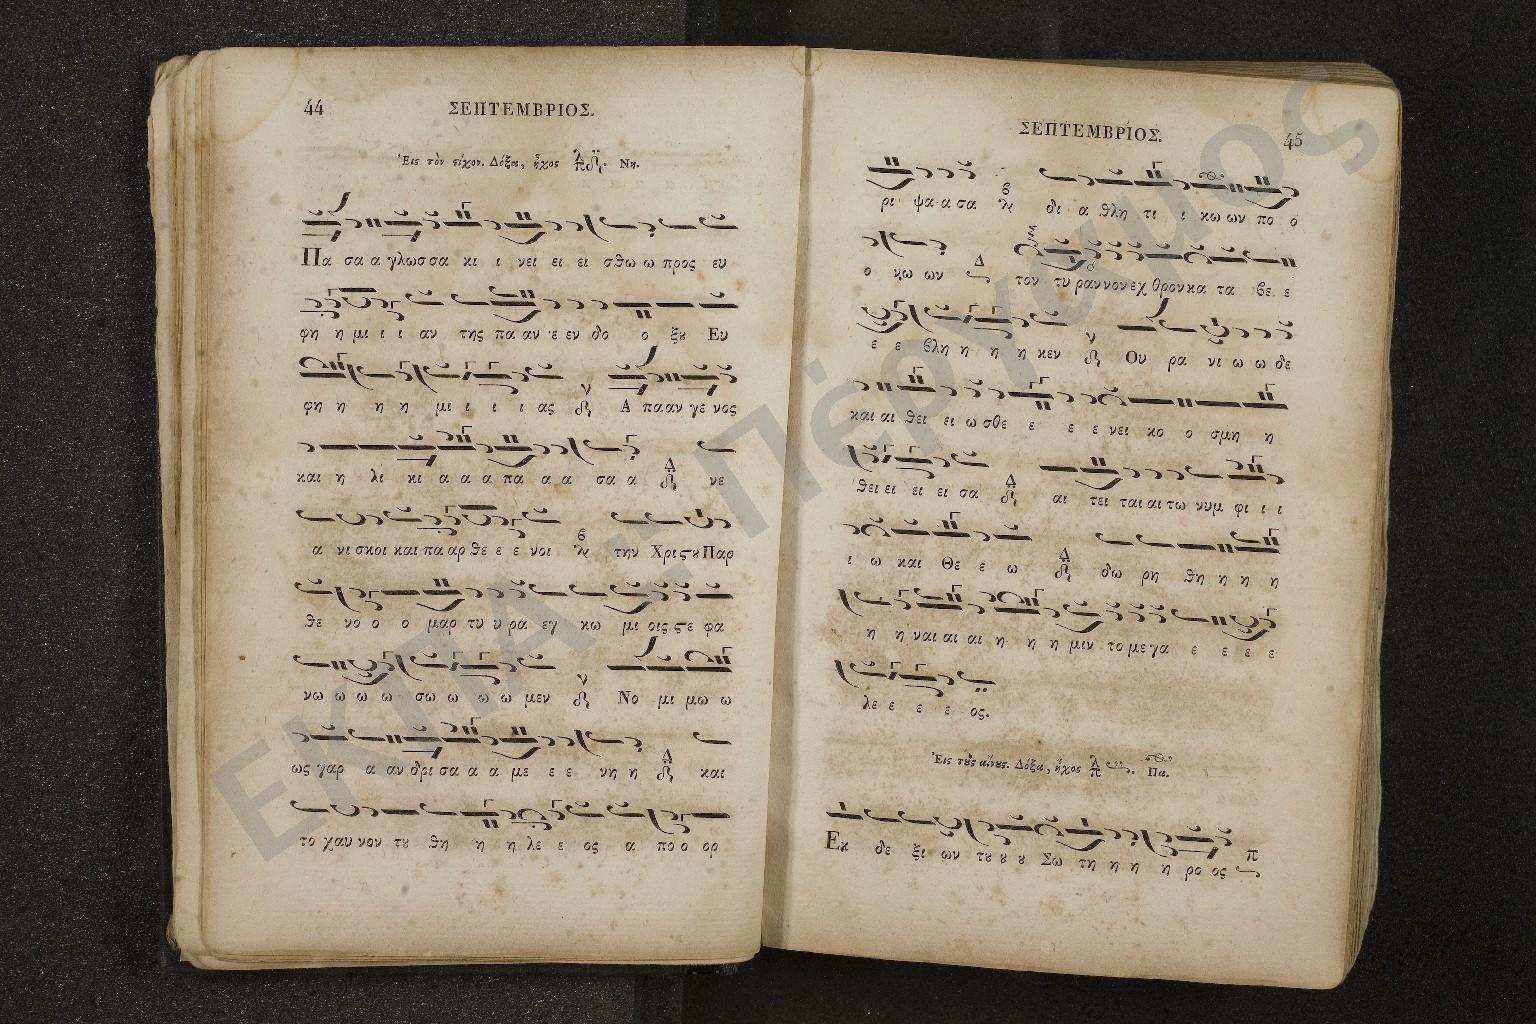 44
ΣΕΠΤΕΜΒΡΙΟΣ.
Εἰς τὸν στίχον. Δόξα, ἦχος πλ δ. Νη.
Πα σα α γλωσσα κι ι νει ει ει σθω ω προς ευ
φη η μι ι ι αν της πα αν ε εν δο ο ξȣ Ευ
φη η η η μι ι ι ι ας Α πααν γε νος
και η λι κι α α α πα α α σα α νε
α νι σκοι και πα αρ θε ε ε νοι την Χριϛȣ Παρ
θε νο ο ο μαρ τυ υ ρα εγ κω μι οις ϛε φα
νω ω ω ω σω ω ω ω μεν Νο μι μω ω
ως γαρ α αν δρι σα α α με ε ε νη η και
το χαυ νον τȣ θη η η λε ε ος α πο ο ορ
ΣΕΠΤΕΜΒΡΙΟΣ.
45
ρι ψα α σα δι α θλη τι ι κω ων πο ο
ο κω ων τον τυ ραννον εχ θρον κα τα βε ε
ε ε βλη η η η κεν Ου ρα νι ω ω δε
και αι θει ει ω σθε ε ε ε νει κο ο σμη η
θει ει ει ει σα αι τει ται αι τω νυμ φι ι ι
ι ω και Θε ε ω δω ρη θη η η η
η η ναι αι αι η η η μιν το με γα ε ε ε ε
λε ε ε ε ος.
Εἰς τȣς αἴνȣς. Δόξα, ἦχος πλ. Πα.
Εκ δε ξι ων τȣ ȣ ȣ Σω τη η η η ρο ος
ΕΚΠΑ - Πέργαμος